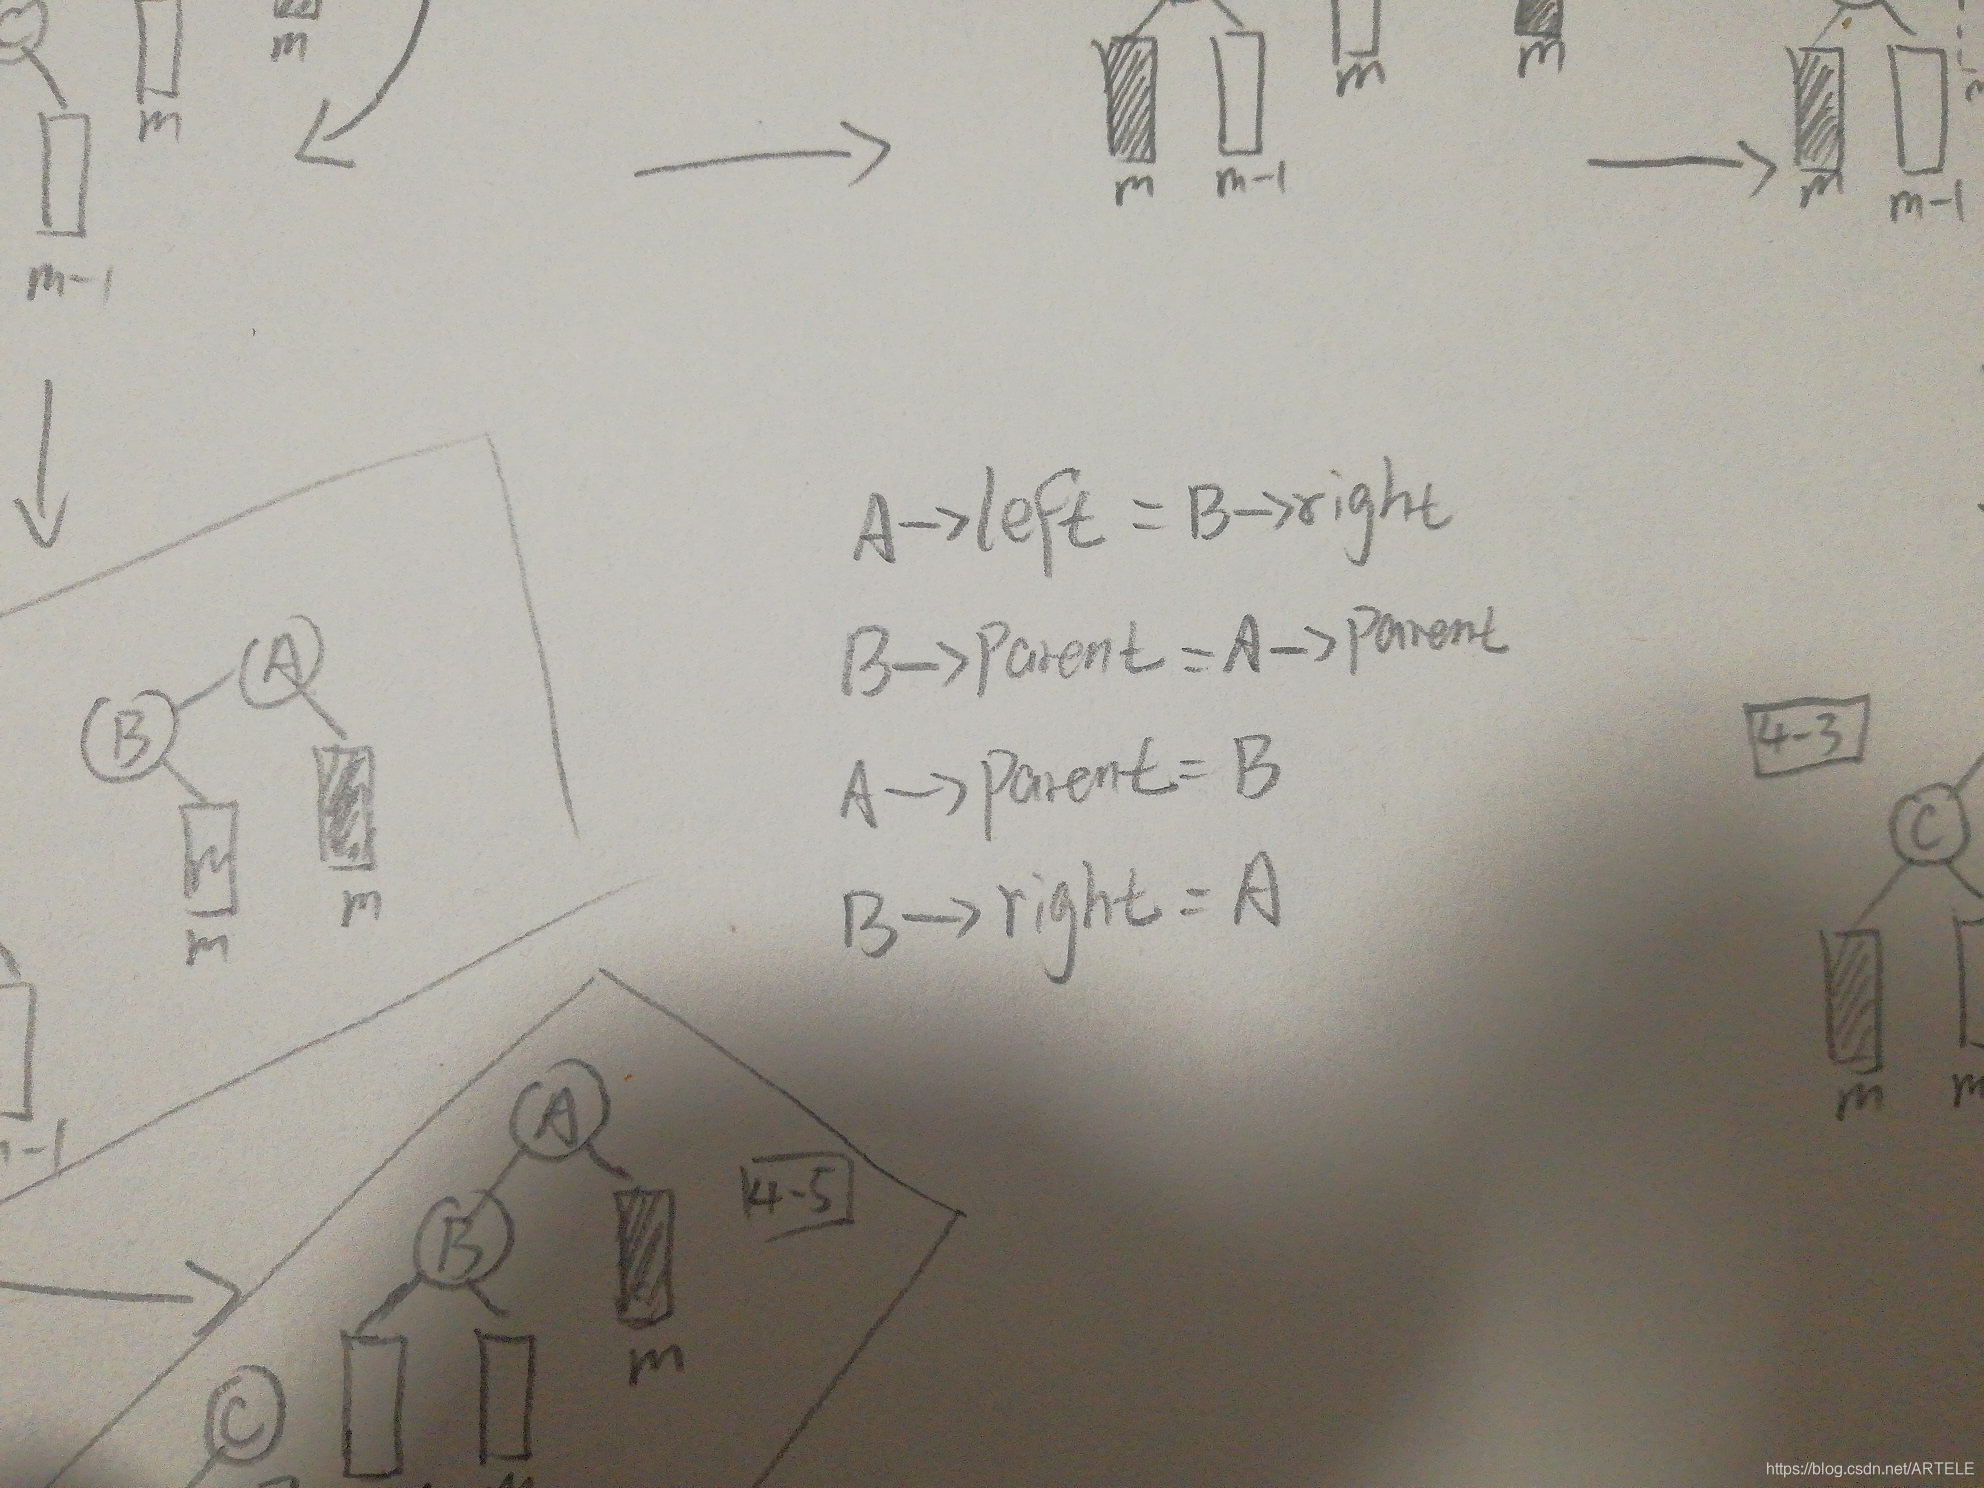 m
m
m
m
m
m-1
m
m-1
m-1
A->left = B->right
B->parent = A->parent
A->parent = B
B->right = A
A
B
m
m
m
4-3
C
m
m
-1
A
B
4-5
m
C
https://blog.csdn.net/ARTELE